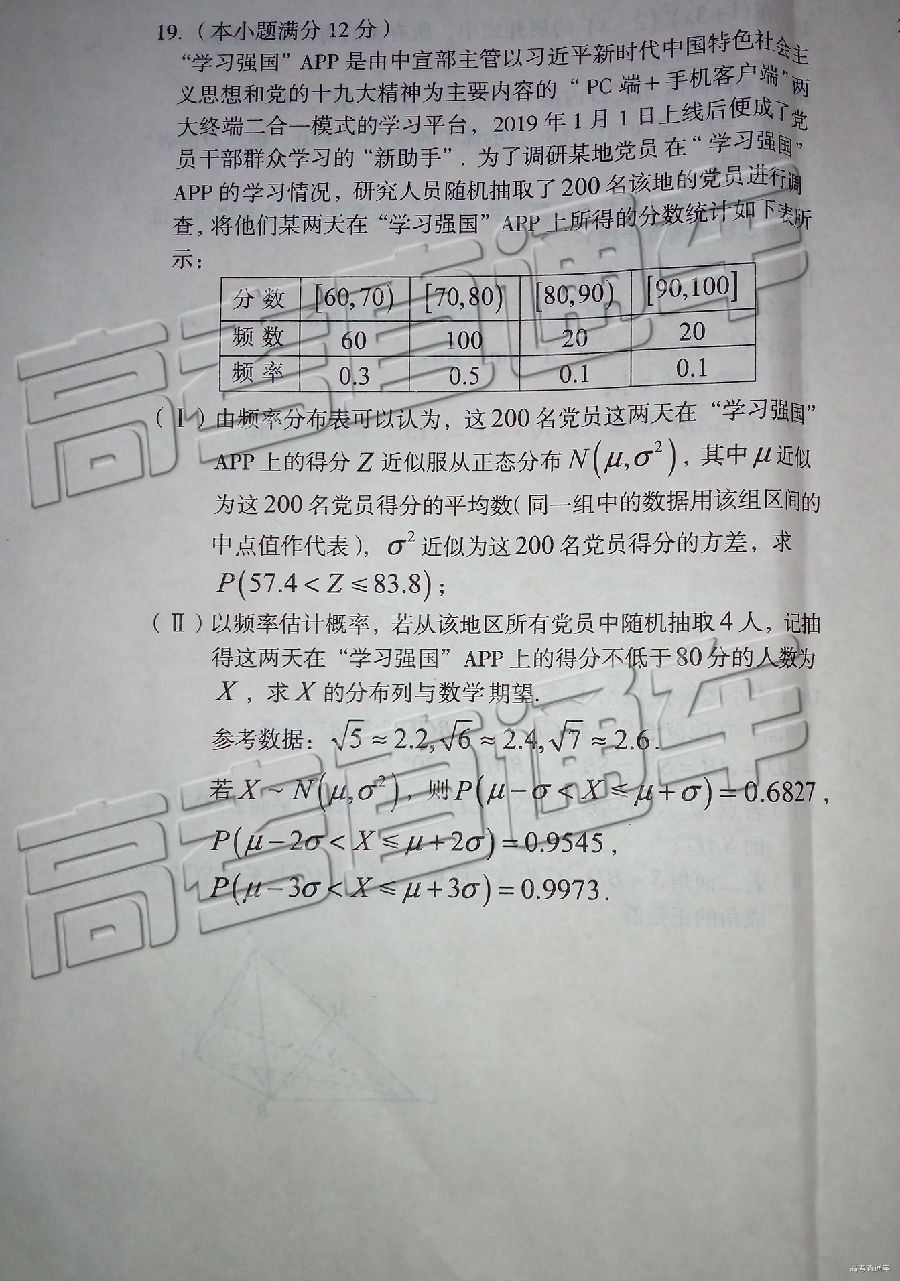 19.（本小题满分12分）
“学习强国”APP是由中宣部主管以习近平新时代中国特色社会主
义思想和党的十九大精神为主要内容的“PC端+手机客户端”两
大终端二合一模式的学习平台，2019年1月1日上线后便成了党
员干部群众学习的“新助手”．为了调研某地党员在“学习强国”
APP的学习情况，研究人员随机抽取了200名该地的党员进行调
查，将他们某两天在“学习强国”APP上所得的分数统计如下表所
示：
分数 [60,70) [70,80) [80,90) [90,100]
频数 60 100 20 20
频率 0.3 0.5 0.1 0.1
（Ⅰ）由频率分布表可以认为，这200名党员这两天在“学习强国”
APP上的得分Z近似服从正态分布N(μ,σ²)，其中μ近似
为这200名党员得分的平均数（同一组中的数据用该组区间的
中点值作代表），σ²近似为这200名党员得分的方差，求
P(57.4<Z≤83.8)；
（Ⅱ）以频率估计概率，若从该地区所有党员中随机抽取4人，记抽
得这两天在“学习强国”APP上的得分不低于80分的人数为
X，求X的分布列与数学期望．
参考数据：√5≈2.2,√6≈2.4,√7≈2.6．
若X~N(μ,σ²)，则P(μ-σ<X≤μ+σ)=0.6827，
P(μ-2σ<X≤μ+2σ)=0.9545，
P(μ-3σ<X≤μ+3σ)=0.9973．
高考直通车
高考直通车
高考直通车